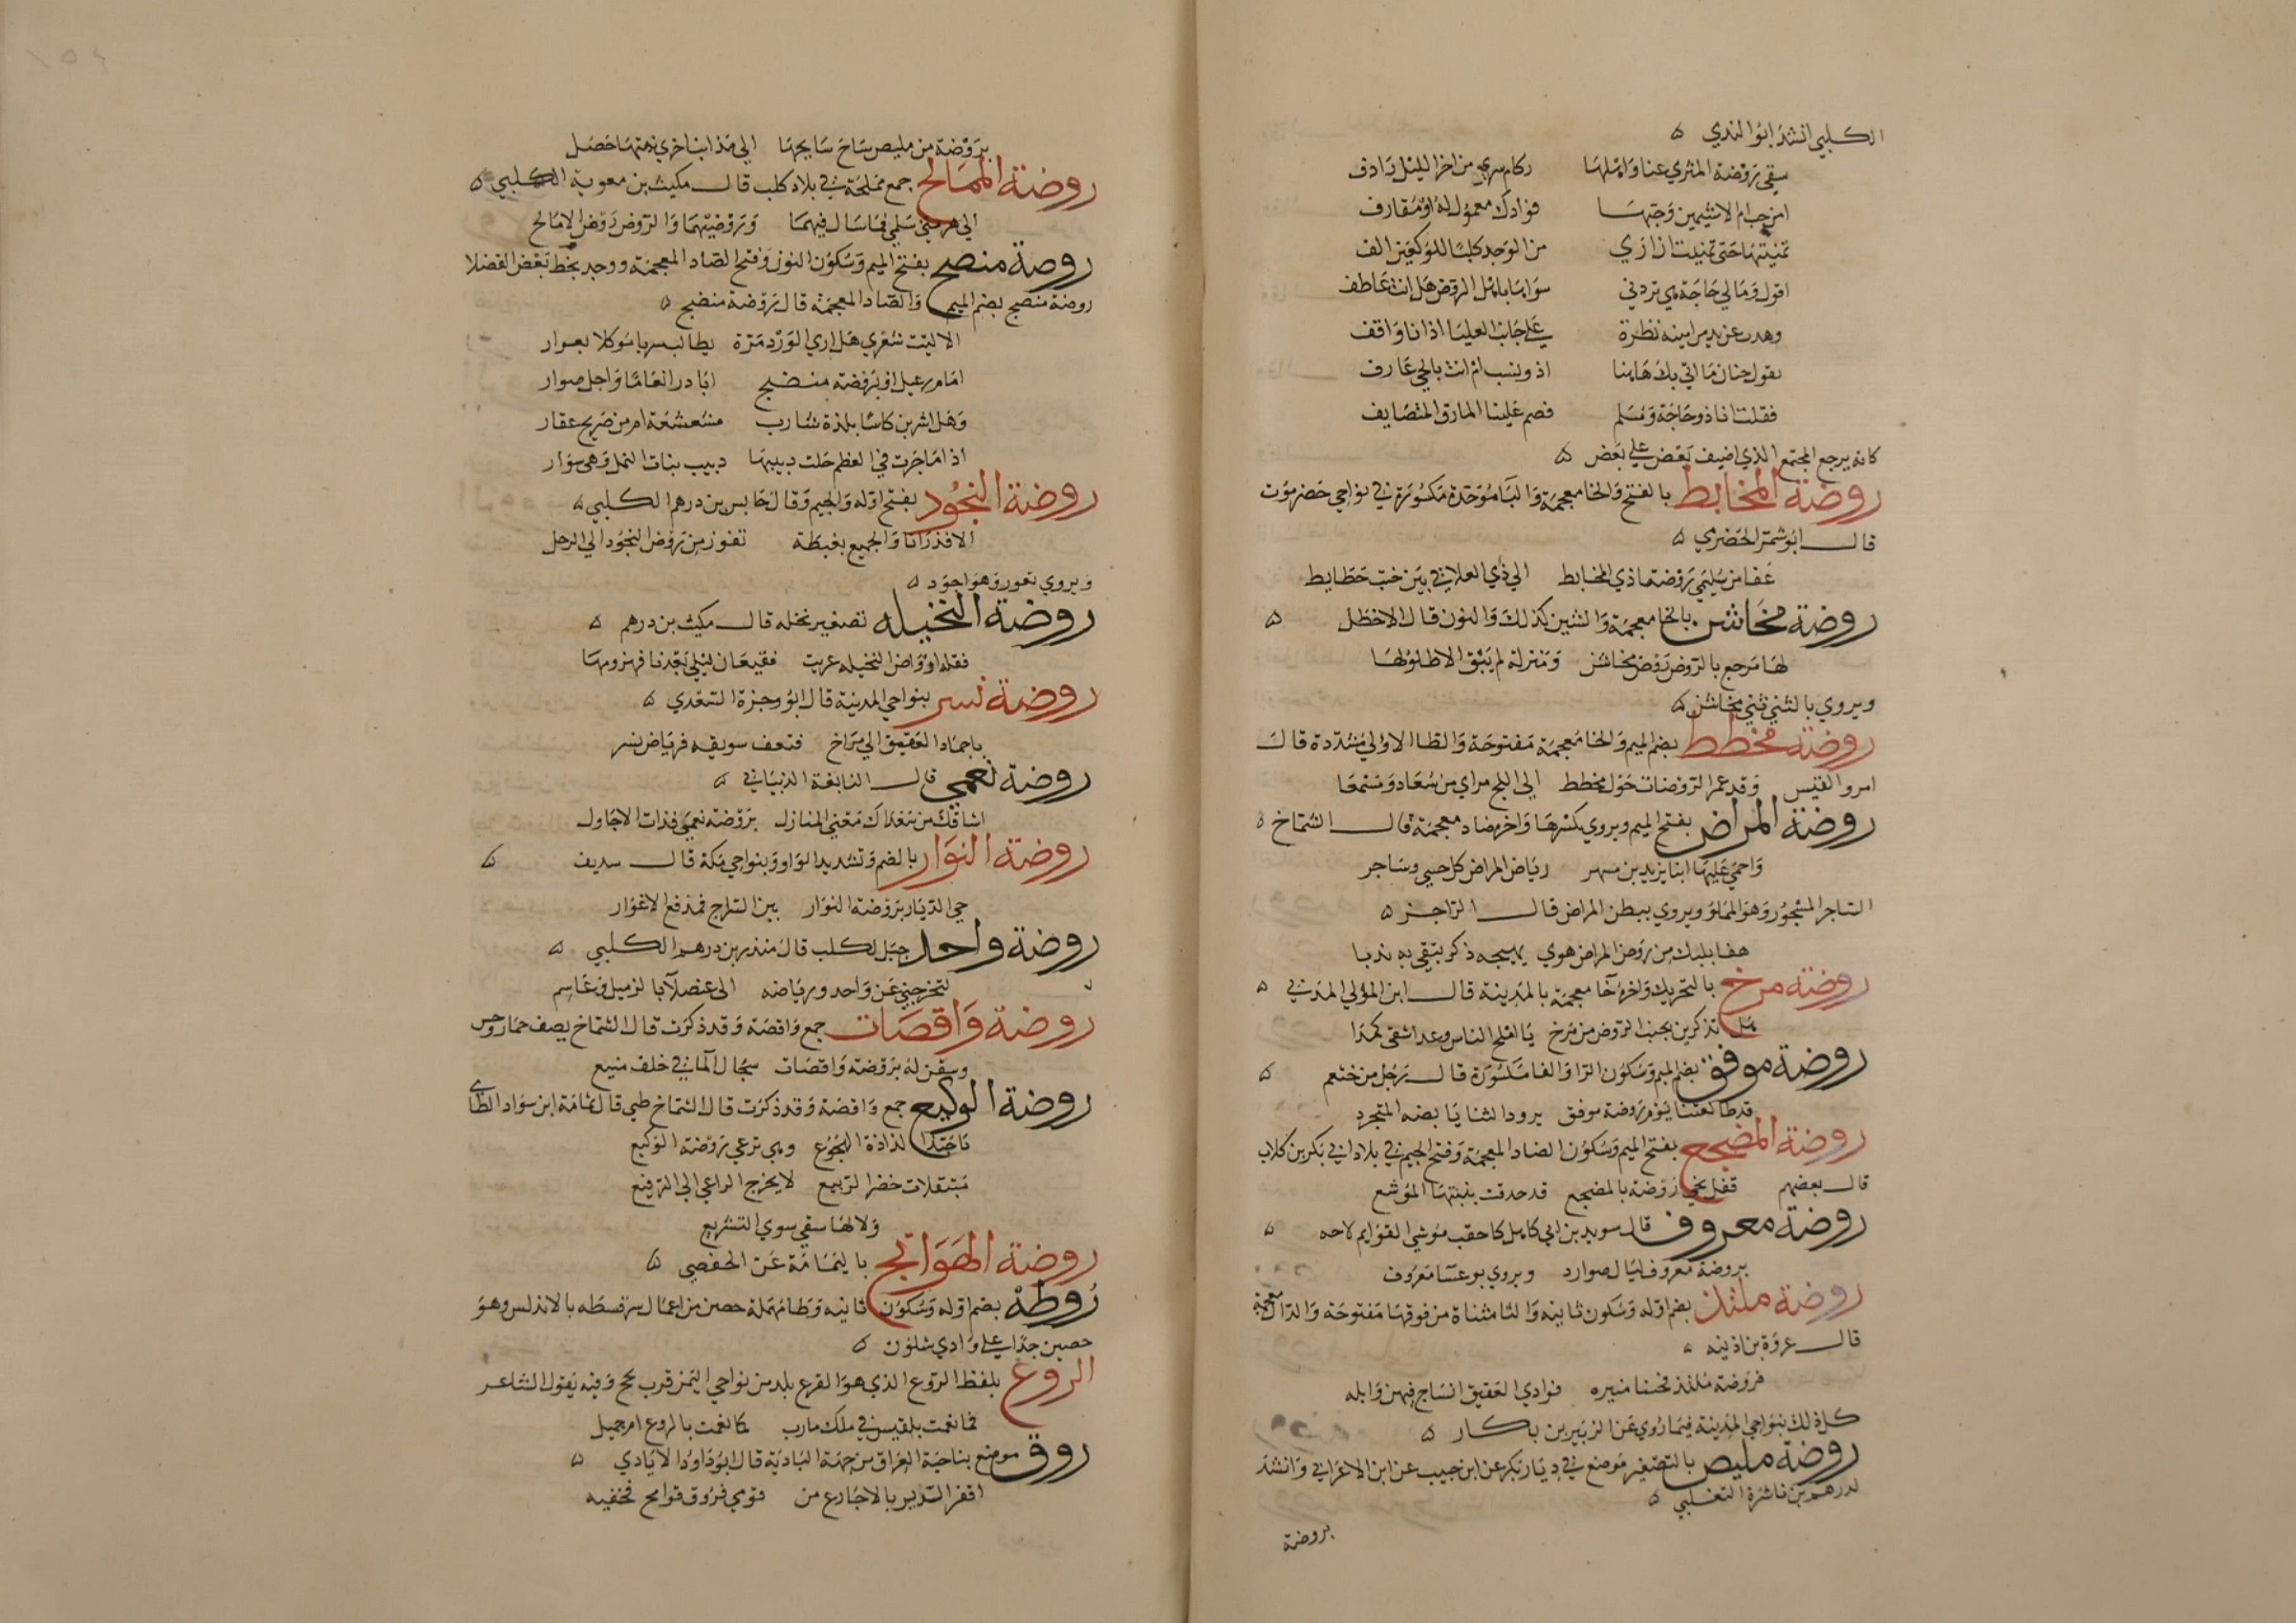 الكلبي انشد ابو الندي ه
سقي روضة المثري عنا واهلها ركام سري من اخر الليل رادف
امن حب ام الاشيمين وحبها فوادك معمول له او مقارف
تمنيتها حتي تمنيت ان اري من الوجد كلبا للوكيعين الف
اقول ومالي حاجة هي تردني سواها باهل الروض هل انت عاطف
وهدت عن يد من امينه نظرة علي جانب العليا اذ انا واقف
يقول حنان ما اتي بك هاهنا اذو نسب ام انت بالحي عارف
فقلت انا ذو حاجة ومسلم فصم علينا المازق المتضايف
كانه يرجع المجتمع الذي اضيف بعض علي بعض ه
روضة المخابط بالفتح والخا معجمة والبا موحدة مكسورة في نواحي حضرموت
قال ابو شمر الحضرمي ه
عفا من سليمي روضتا ذي المخابط الي ذي العلاني بين خبت خطايط
روضة مخاشن بالخا معجمة والشين كذلك والنون قال الاخطل ه
لها مرجع بالروض روض مخاشن ومنزلة لم يبق الا طلولها
ويروي بالثني ثني مخاشن ه
روضة مخطط بضم الميم والخا معجمة مفتوحة والطا الاولي مشددة قال
امرو القيس وقد عمر الروضات حول مخطط الي اللج مراي من سعاد ومسمعا
روضة المراض بفتح الميم ويروي بكسرها واخره ضاد معجمة قال الشماخ ه
واحمي عليها ابنا يزيد بن مسهر رياض المراض كل حسي وساجر
الساجر المسجور وهو المملو ويروي ببطن المراض قال الراجز ه
هفا بلبك من روض المراض هوي يهيجه ذكر يتقي به ندبا
روضة مرخ بالتحريك واخره خا معجمة بالمدينة قال ابن المولي المدني ه
هل تذكرين بجنب الروض من مرخ يا املح الناس وعدا شقي كمدا
روضة موفق بضم الميم وسكون الرا والفا مكسورة قال رجل من خثعم ه
قد طالعتنا يوم روضة موفق برود الثنايا بضه المتجرد
روضة المضجع بفتح الميم وسكون الضاد المعجمة وفتح الجيم في بلاد ابي بكر بن كلاب
قال بعضهم قفل يحي روضة بالمضجع قد حدقت بنبتها الموشع
روضة معروف قال سويد بن ابي كاهل كاحقب موشي القوايم لاحه ه
بروضة معروف ليال صوارد ويروي بوعسا معروف
روضة ملتذ بضم اوله وسكون ثانيه والتا مثناة من فوقها مفتوحة والذال معجمة
قال عروة بن اذينه ه
فروضة ملتذ فجنبا منيره فوادي العقيق انساح فيهن وابله
كل ذلك بنواحي المدينة فيما روي عن الزبير بن بكار ه
روضة مليص بالتصغير موضع في ديار بكر عن ابن حبيب عن ابن الاعرابي وانشد
لدرهم بن ناشرة التغلبي ه
بروضة
بروضة من مليص ساح سايحها الي مذانب اخري نبتها خضل
روضة الممالح جمع مملحة في بلاد كلب قال مكيث بن معوية الكلبي ه
الي هرمتي سلمي فما سال فيهما وروضيهما والروض روض الامالح
روضة منصح بفتح الميم وسكون النون وفتح الضاد المعجمة ووجد بخط بعض الفضلا
روضة منضج بضم الميم والضاد المعجمة قال روضة منضج ه
الا ليت شعري هل اري الورد مرة يطالب سربا موكلا بعوار
امام رعيل او بروضة منضج ابادر انعاما واجل صوار
وهل اشربن كاسا بلذة شارب مشعشعة او من صريح عقار
اذا ما جرت في العظم خلت دبيبها دبيب بنات النمل وهي سوار
روضة النجود بفتح اوله والجيم وقال حابس بن درهم الكلبي ه
الا قد رانا والجميع بغبطة تفوز من روض النجود الي الرحل
ويروي تغور وهو اجود ه
روضة النخيله تصغير نخله قال مكيث بن درهم ه
فقله اروض النخيله عريت فقيعان ليلي بعدنا فهزومها
روضة نسر بنواحي المدينة قال ابو وجزة السعدي ه
باجماد العقيق الي مراخ فنعف سويقه فرياض نسر
روضة نعمي قال النابغة الذبياني ه
اشاقك من سعداك مغني المنازل بروضة نعمي فذات الاجاول
روضة النوار بالضم وتشديد الواو وبنواحي مكة قال سديف ه
حي الديار بروضة النوار بين السراج فمدفع الاغوار
روضة واحد جبل لكلب قال منذر بن درهم الكلبي ه
لتخرجني عن واحد ورياضه الي عنصلآ بالزميل وعاسم
روضة واقصات جمع واقصة وقد ذكرت قال الشماخ يصف حمار وحس
وسقن له بروضة واقصات سجال المآ في خلف منيع
روضة الوكيع جمع واقصة وقد ذكرت قال الشماخ طبي قال ثمامة ابن سواد الطاي
يا حبذا لذاذة الهجوع وهي ترعي روضة الوكيع
مبتقلات خضر الربيع لا يخرج الراعي الي الترفيع
ولا لها سقي سوي التشريع
روضة الهوابج باليمامة عن الحفصي ه
روطة بضم اوله وسكون ثانيه وطا مهملة حصن من اعمال سرقسطه بالاندلس وهو
حصين جدا علي وادي شلون ه
الروع بلفظ الروع الذي هو الفزع بلد من نواحي اليمن قرب لحج وفيه يقول الشاعر
فما نعمت بلقيس في ملك مارب كما نعمت بالروع ام جميل
روق موضع بناحية العراق من جهة البادية قال ابو داود الايادي ه
اقفر الدير بالاجارع من قومي فروق فرامح فخفيه